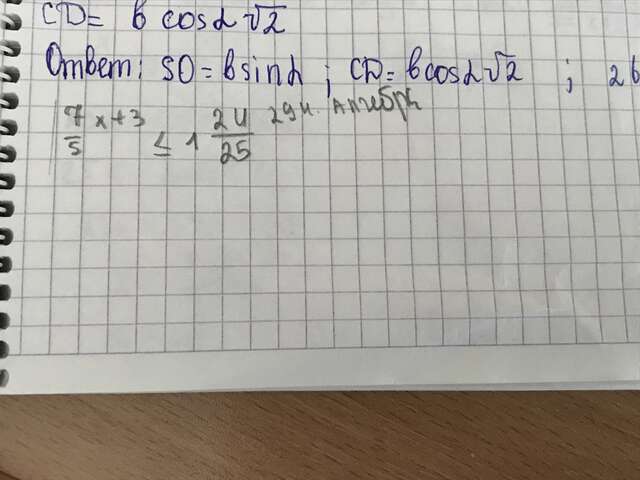 CD= b cosα√2
Ответ: SO=bsinα; CD=bcosα√2 ; 2b
7/5 x+3 ≤ 1 24/25 29н. Алгебра